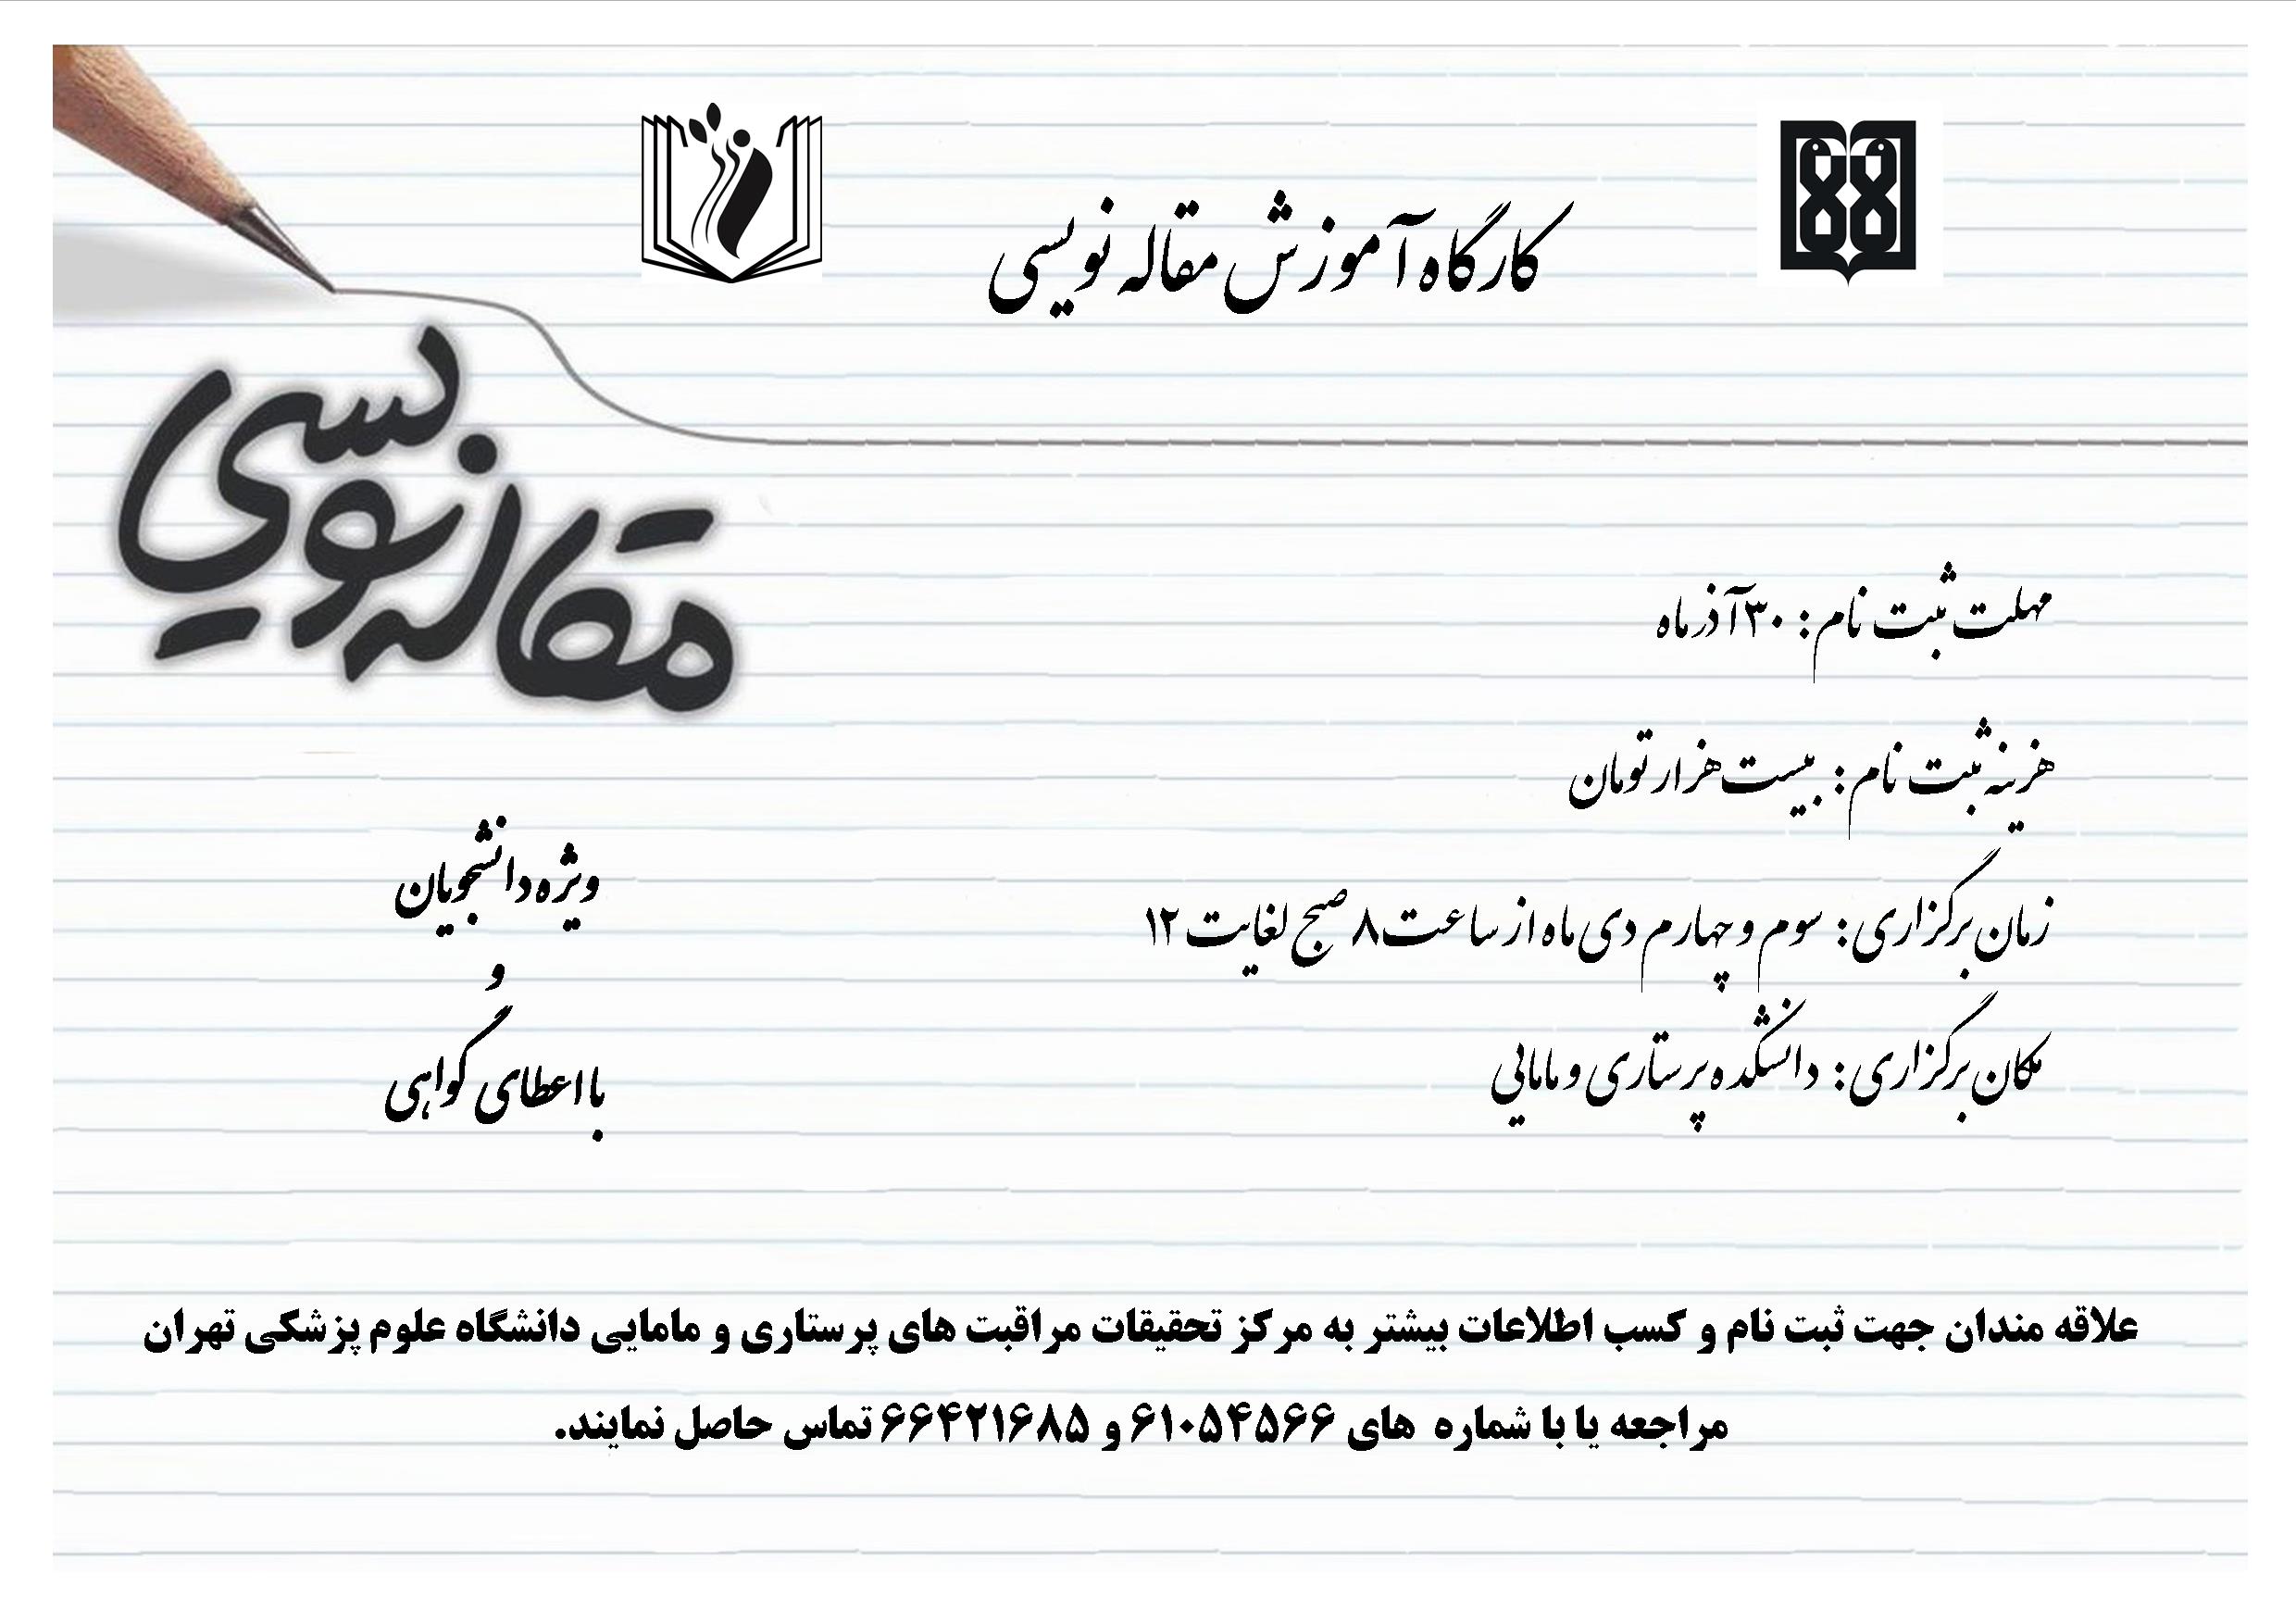 کارگاه آموزش مقاله نویسی
مقاله نویسی
مهلت ثبت نام: ۳۰ آذر ماه
هزینه ثبت نام: بیست هزار تومان
زمان برگزاری: سوم و چهارم دی ماه از ساعت ۸ صبح لغایت ۱۲
مکان برگزاری: دانشکده پرستاری و مامایی
ویژه دانشجویان
و
با اعطای گواهی
علاقه مندان جهت ثبت نام و کسب اطلاعات بیشتر به مرکز تحقیقات مراقبت های پرستاری و مامایی دانشگاه علوم پزشکی تهران
مراجعه یا با شماره های ۶۱۰۵۴۵۶۶ و ۶۶۴۲۱۶۸۵ تماس حاصل نمایند.